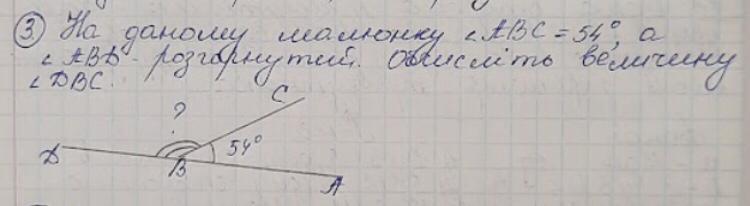 ③ На даному малюнку ∠ABC = 54°, а
∠ABD - розгорнутий. Обчисліть величину
∠DBC.
C
?
54°
D
B
A